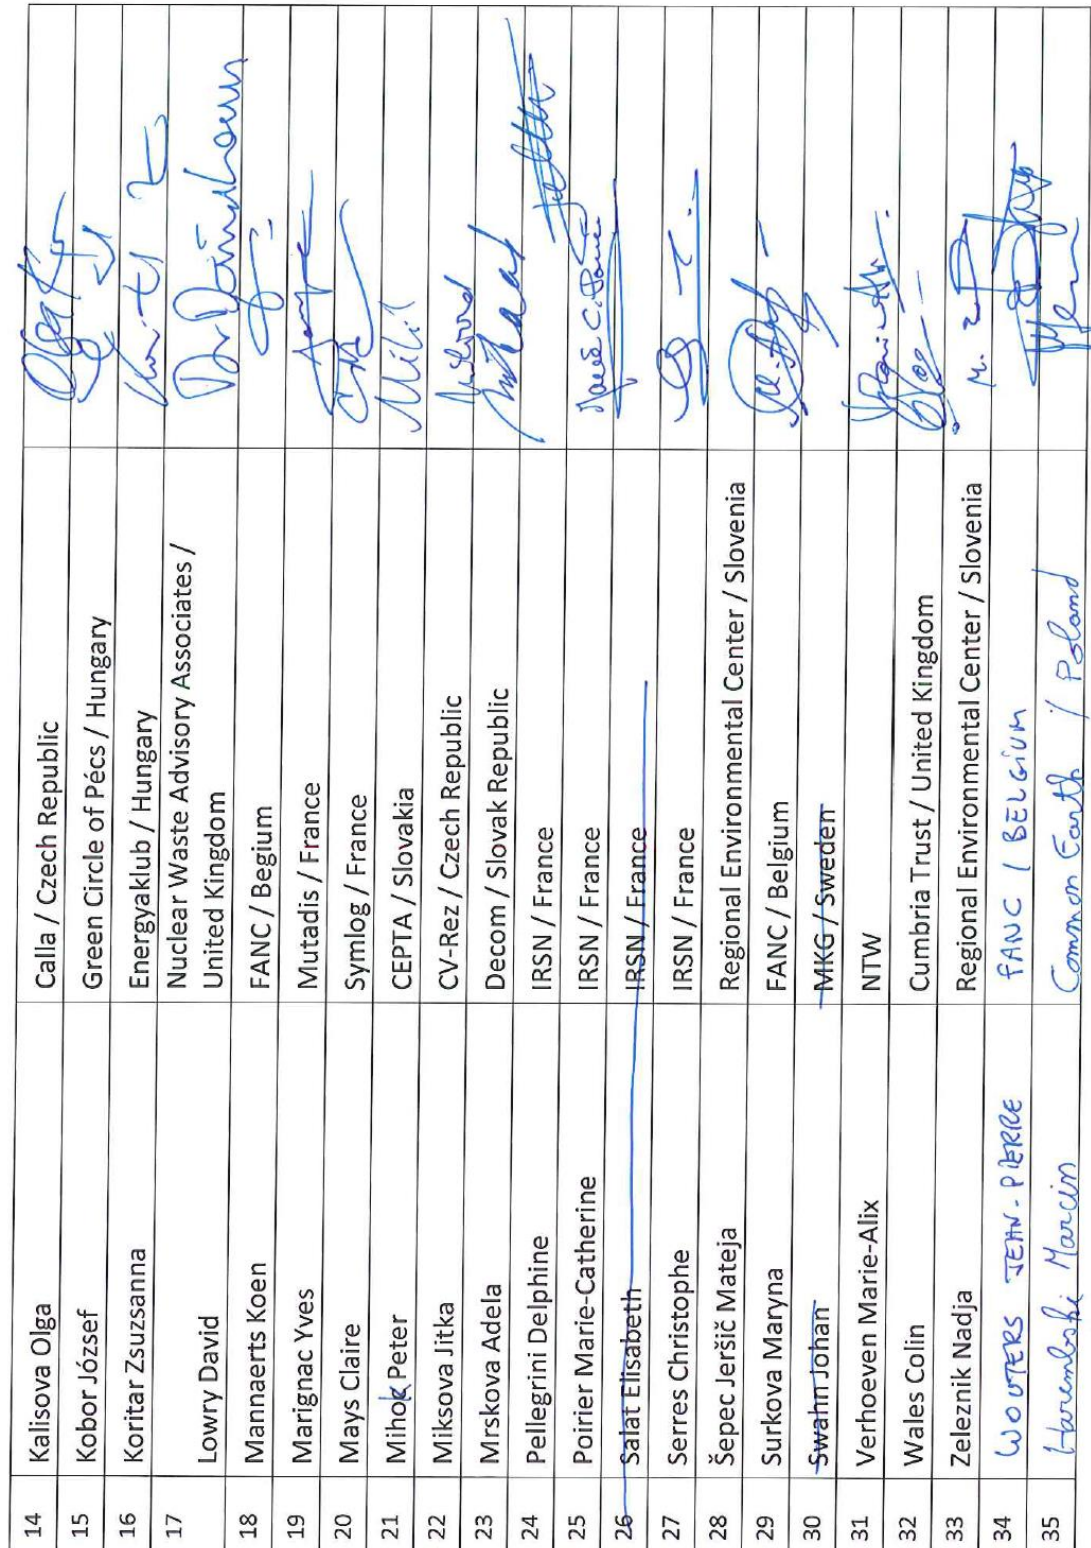 14 Kalisova Olga Calla / Czech Republic
15 Kobor József Green Circle of Pécs / Hungary
16 Koritar Zsuzsanna Energyaklub / Hungary
17 Lowry David Nuclear Waste Advisory Associates /
United Kingdom
18 Mannaerts Koen FANC / Begium
19 Marignac Yves Mutadis / France
20 Mays Claire Symlog / France
21 Mihok Peter CEPTA / Slovakia
22 Miksova Jitka CV-Rez / Czech Republic
23 Mrskova Adela Decom / Slovak Republic
24 Pellegrini Delphine IRSN / France
25 Poirier Marie-Catherine IRSN / France
26 Salat Elisabeth IRSN / France
27 Serres Christophe IRSN / France
28 Šepec Jeršič Mateja Regional Environmental Center / Slovenia
29 Surkova Maryna FANC / Belgium
30 Swahn Johan MKG / Sweden
31 Verhoeven Marie-Alix NTW
32 Wales Colin Cumbria Trust / United Kingdom
33 Zeleznik Nadja Regional Environmental Center / Slovenia
34 WOUTERS JEAN-PIERRE FANC / BELGIUM
35 Harembski Marcin Common Earth / Poland